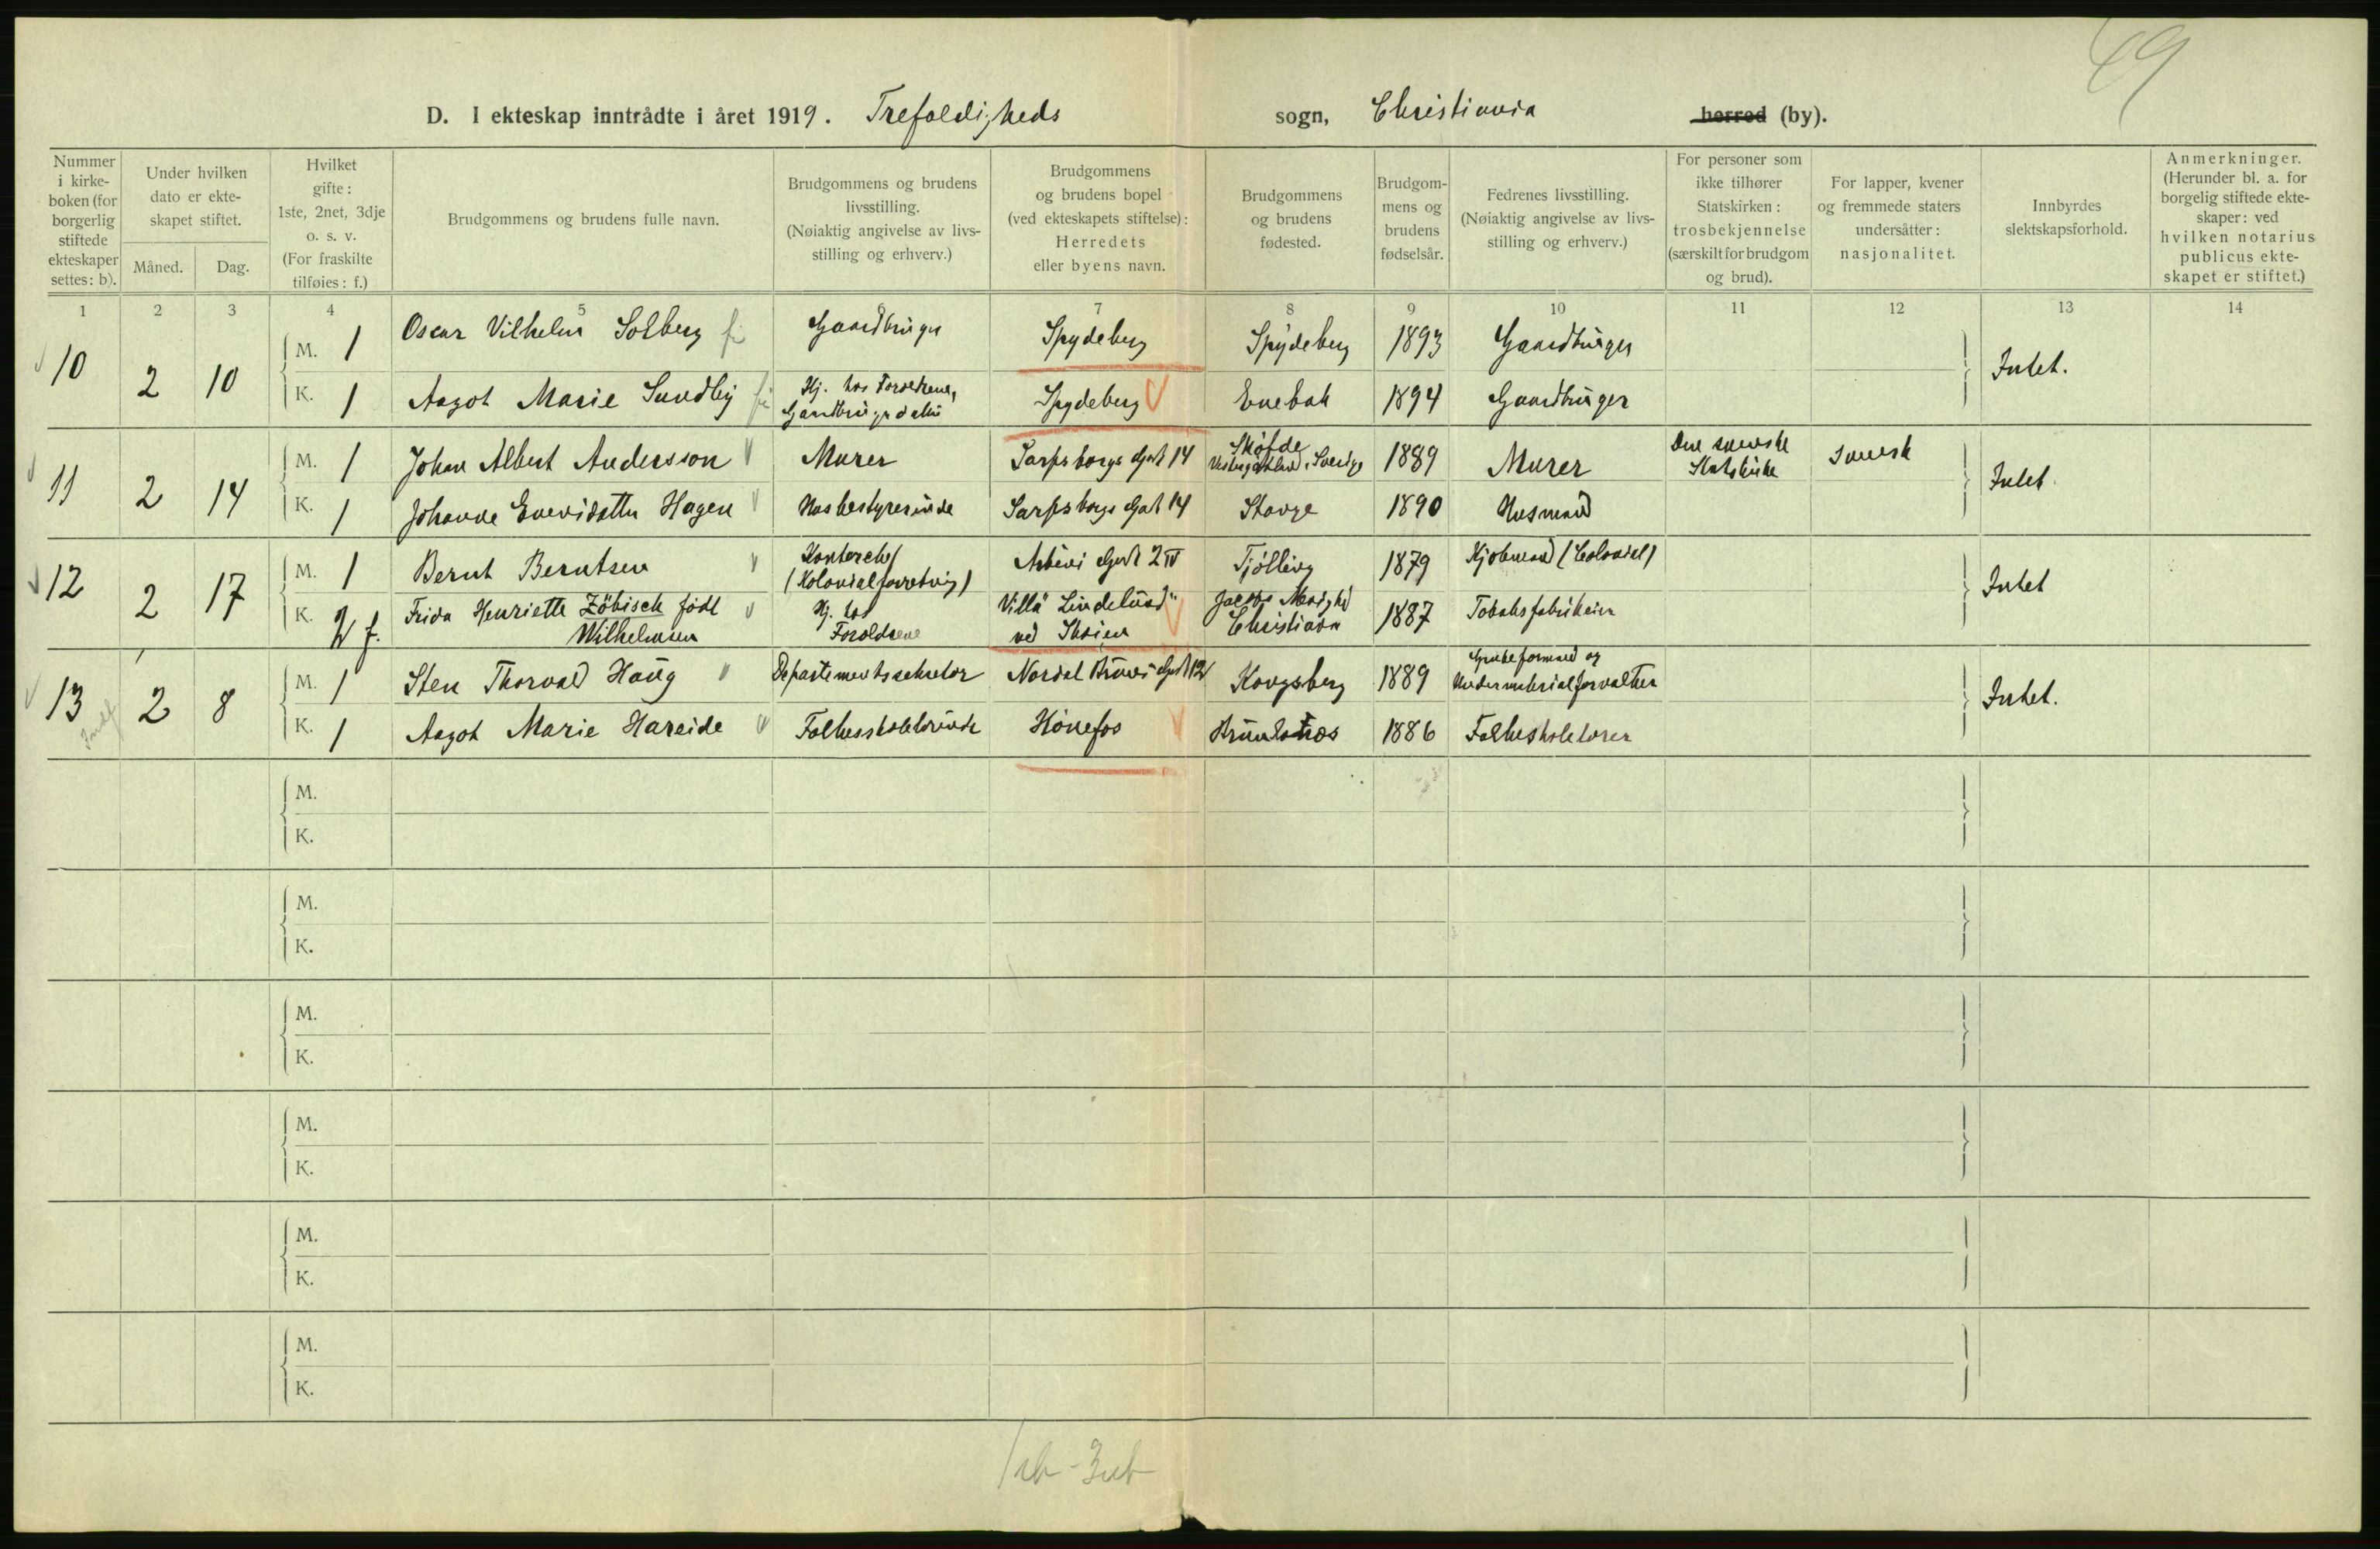 49
D. I ekteskap inntrådte i året 1919. Trefoldigheds sogn, Christiania herred (by).
Nummer i kirkeboken (for borgerlig stiftede ekteskaper settes: b).
Under hvilken dato er ekteskapet stiftet.
Måned. Dag.
Hvilket gifte: 1ste, 2net, 3dje o. s. v. (For fraskilte tilføies: f.)
Brudgommens og brudens fulle navn.
Brudgommens og brudens livsstilling. (Nøiaktig angivelse av livsstilling og erhverv.)
Brudgommens og brudens bopel (ved ekteskapets stiftelse): Herredets eller byens navn.
Brudgommens og brudens fødested.
Brudgommens og brudens fødselsår.
Fedrenes livsstilling. (Nøiaktig angivelse av livsstilling og erhverv.)
For personer som ikke tilhører Statskirken: trosbekjennelse (særskilt for brudgom og brud).
For lapper, kvener og fremmede staters undersåtter: nasjonalitet.
Innbyrdes slektskapsforhold.
Anmerkninger. (Herunder bl. a. for borgelig stiftede ekteskaper: ved hvilken notarius publicus ekteskapet er stiftet.)
1 2 3 4 5 6 7 8 9 10 11 12 13 14
10 2 10 M. 1 Oscar Vilhelm Solberg Gaardbruger Spydeberg Spydeberg 1893 Gaardbruger Intet.
K. 1 Aagot Marie Sundby Hj. hos Foreldrene, Gaardbrugerdatter Spydeberg Enebak 1894 Gaardbruger
11 2 14 M. 1 Johan Albert Andersson Murer Sarpsborgs Gade 14 Sköfde Sverige 1889 Murer Den svenske Statskirke svensk Intet.
K. 1 Johanne Enevidatter Hagen Husbestyrerinde Sarpsborgs Gade 14 Stange 1890 Husmand
12 2 17 M. 1 Bernt Berntsen Kontorchef (Kolonialforretning) Gade 2 IV Tjölling 1879 Kjøbmand (Colonial) Intet
K. 2 f. Frida Henriette Zöbisch født Wilhelmsen Hj. hos Foreldrene Villa "Lindelund" ved Skøien Jacobs Menighed Christiania 1887 Tobaksfabrikeier
13 2 8 M. 1 Sten Thorvald Haug Departementssekretær Nordal Bruns Gade 12 Kongsberg 1889 Grubeformand og Undermaterialforvalter Intet.
K. 1 Aagot Marie Hareide Folkeskolelærerinde Hönefos Brunlanæs 1886 Folkeskolelærer
M.
K.
M.
K.
M.
K.
M.
K.
M.
K.
M.
K.